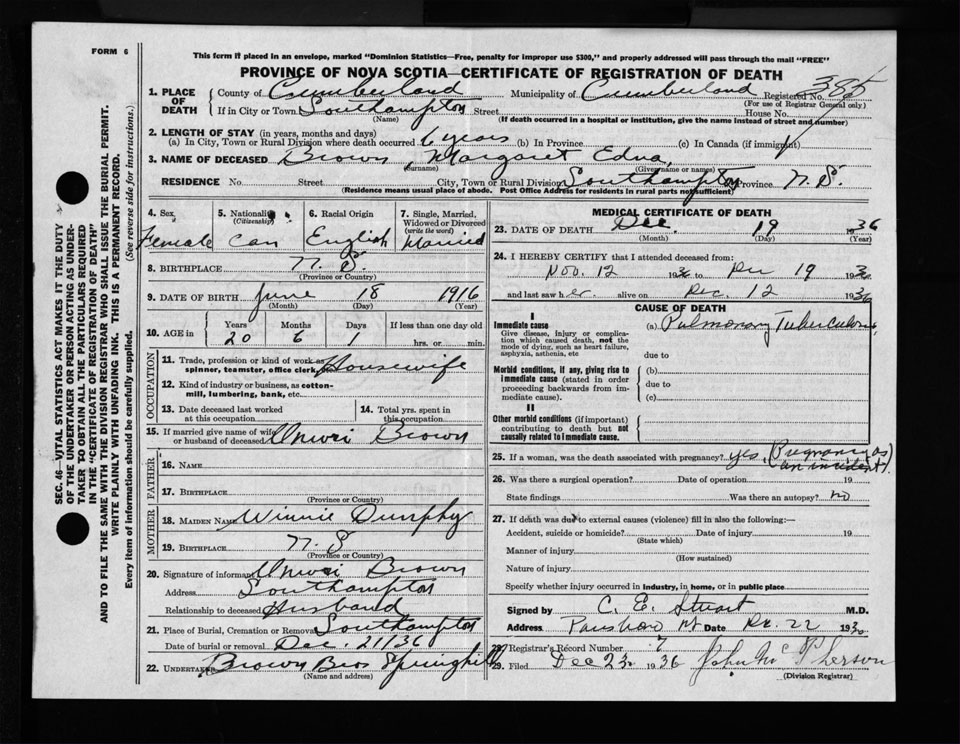 FORM 6
This form if placed in an envelope, marked "Dominion Statistics—Free, penalty for improper use $300," and properly addressed will pass through the mail "FREE"
PROVINCE OF NOVA SCOTIA—CERTIFICATE OF REGISTRATION OF DEATH
385
1. PLACE OF DEATH
County of Cumberland Municipality of Cumberland Registered No.
(For use of Registrar General only)
If in City or Town Southampton Street House No.
(Name) (If death occurred in a hospital or institution, give the name instead of street and number)
2. LENGTH OF STAY (in years, months and days)
(a) In City, Town or Rural Division where death occurred 6 years (b) In Province (c) In Canada (if immigrant)
3. NAME OF DECEASED Brown, Margaret Edna
(Surname) (Given name or names)
RESIDENCE No. Street City, Town or Rural Division Southampton Province N. S.
(Residence means usual place of abode. Post Office Address for residents in rural parts not sufficient)
4. Sex Female
5. Nationality (Citizenship) Can
6. Racial Origin English
7. Single, Married, Widowed or Divorced (write the word) Married
8. BIRTHPLACE N. S.
(Province or Country)
9. DATE OF BIRTH June 18 1916
(Month) (Day) (Year)
10. AGE in Years 20 Months 6 Days 1 If less than one day old hrs. or min.
OCCUPATION
11. Trade, profession or kind of work as spinner, teamster, office clerk, etc. Housewife
12. Kind of industry or business, as cotton-mill, lumbering, bank, etc.
13. Date deceased last worked at this occupation
14. Total yrs. spent in this occupation
15. If married give name of wife or husband of deceased Brown
FATHER
16. NAME
17. BIRTHPLACE
(Province or Country)
MOTHER
18. MAIDEN NAME Winnie Dunphy
19. BIRTHPLACE N. S
(Province or Country)
20. Signature of informant Brown
Address Southampton
Relationship to deceased Husband
21. Place of Burial, Cremation or Removal Southampton
Date of burial or removal Dec. 21/36
22. UNDERTAKER Brown Bros Springhill
(Name and address)
MEDICAL CERTIFICATE OF DEATH
23. DATE OF DEATH Dec. 19 1936
(Month) (Day) (Year)
24. I HEREBY CERTIFY that I attended deceased from:
Nov. 12 1936 to Dec 19 1936
and last saw her alive on Dec. 12 1936
CAUSE OF DEATH
I
Immediate cause
Give disease, injury or complication which caused death, not the mode of dying, such as heart failure, asphyxia, asthenia, etc
(a) Pulmonary Tuberculosis
due to
Morbid conditions, if any, giving rise to immediate cause (stated in order proceeding backwards from immediate cause).
(b)
due to
(c)
II
Other morbid conditions (if important) contributing to death but not causally related to immediate cause.
25. If a woman, was the death associated with pregnancy? yes (Pregnancy as an incident).
26. Was there a surgical operation? Date of operation 19
State findings Was there an autopsy? no
27. If death was due to external causes (violence) fill in also the following:—
Accident, suicide or homicide? Date of injury 19
(State which)
Manner of injury
(How sustained)
Nature of injury
Specify whether injury occurred in Industry, in home, or in public place
Signed by C. E. Stuart M.D.
Address Parrsboro Date Dec. 22 1936
28. Registrar's Record Number 7
29. Filed Dec 23 1936 John McPherson
(Division Registrar)
SEC. 46—VITAL STATISTICS ACT MAKES IT THE DUTY
OF THE UNDERTAKER OR PERSON ACTING AS UNDER-
TAKER TO OBTAIN ALL THE PARTICULARS REQUIRED
IN THE "CERTIFICATE OF REGISTRATION OF DEATH"
AND TO FILE THE SAME WITH THE DIVISION REGISTRAR WHO SHALL ISSUE THE BURIAL PERMIT.
WRITE PLAINLY WITH UNFADING INK. THIS IS A PERMANENT RECORD.
Every item of information should be carefully supplied. (See reverse side for instructions.)